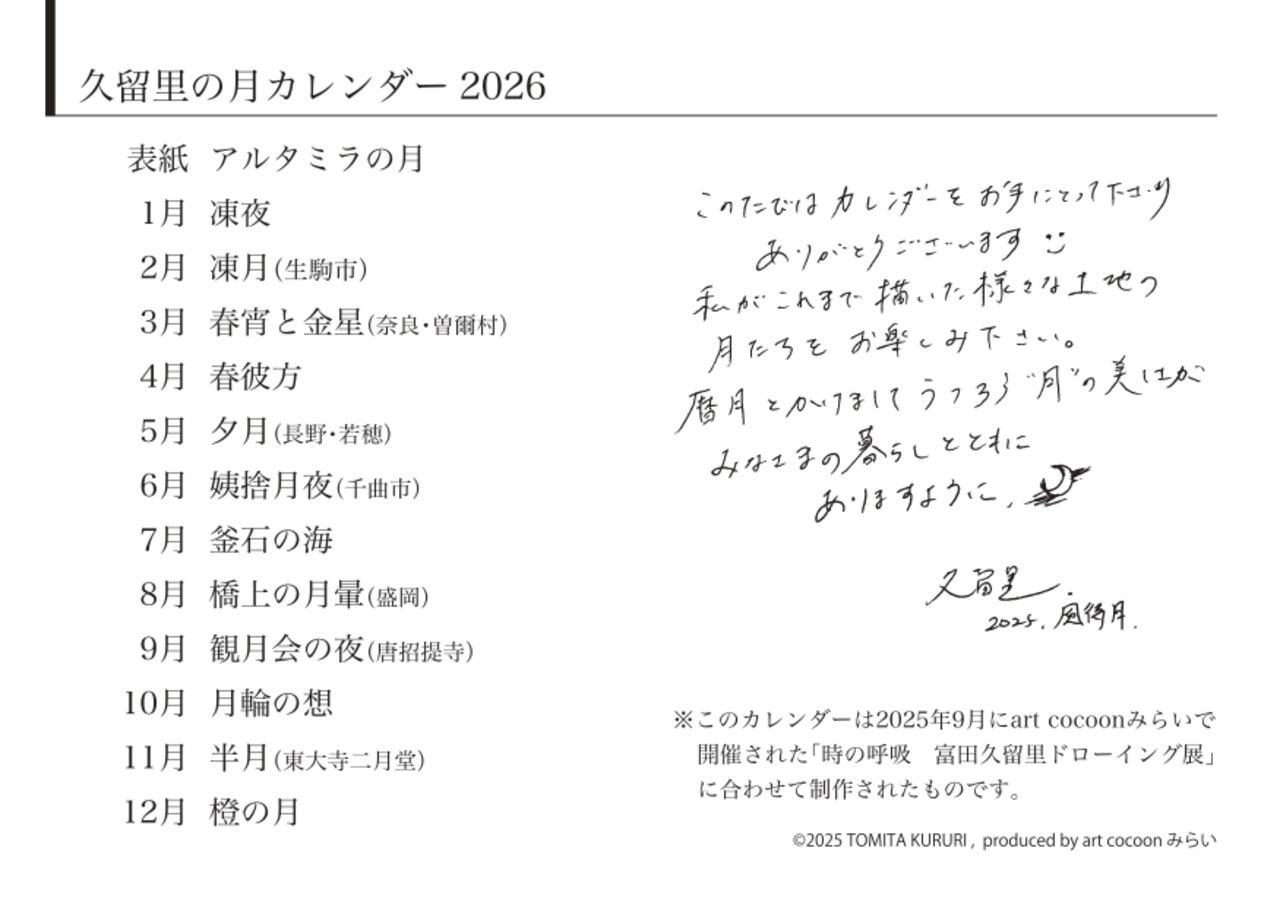 久留里の月カレンダー 2026
表紙 アルタミラの月
1月 凍夜
2月 凍月(生駒市)
3月 春宵と金星(奈良・曽爾村)
4月 春彼方
5月 夕月(長野・若穂)
6月 姨捨月夜(千曲市)
7月 釜石の海
8月 橋上の月暈(盛岡)
9月 観月会の夜(唐招提寺)
10月 月輪の想
11月 半月(東大寺二月堂)
12月 橙の月
このたびは カレンダーを お手にとって下さり
ありがとうございます
私がこれまで描いた様々な土地の
月たちを お楽しみ下さい。
暦月とかけまして うつろう "月"の美しさが
みなさまの暮らしとともに
ありますように、
久留里.
2025.
※このカレンダーは2025年9月にart cocoonみらいで
開催された「時の呼吸　富田久留里ドローイング展」
に合わせて制作されたものです。
©2025 TOMITA KURURI , produced by art cocoon みらい